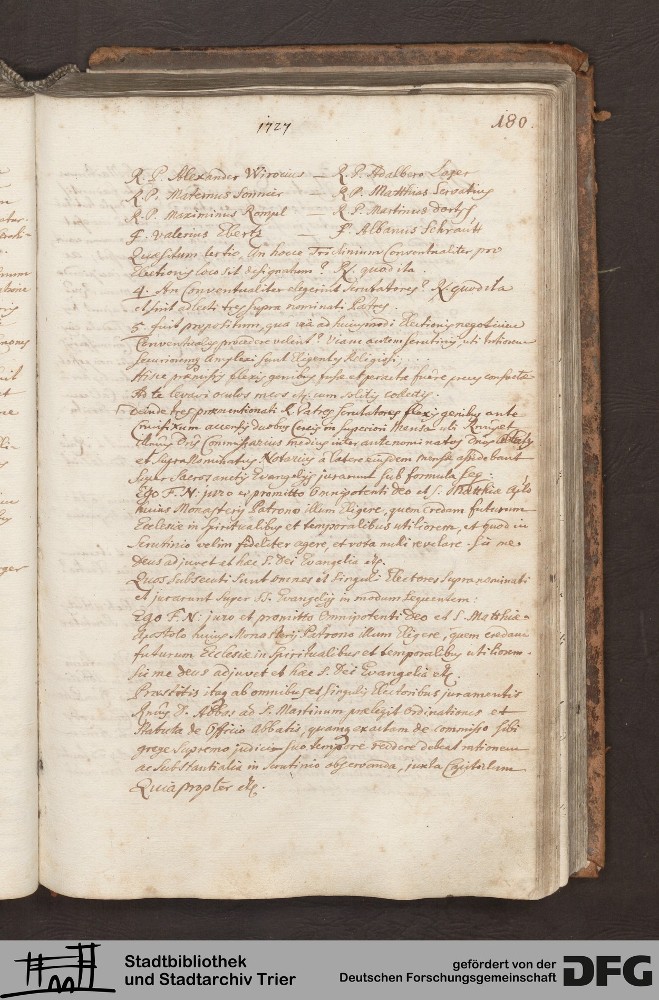 1727
180.
R. P. Alexander Wirocius — R. P. Adalbero Lager
R. P. Maternus Sonnier — R. P. Matthias Servatius
R. P. Maximinus Rompel — R. P. Martinus
F. Valerius Ebertz — F. Albanus Schrautt
Quaesitum tertio, An hocce Triclinium Conventualiter pro
Electionis loco sit designatum? R. quod ita.
4. An Conventualiter elegerint Scrutatores? R. quod ita
et sint adlecti tres supra nominati Patres.
5. fuit propositum, qua via ad huiusmodi Electionis negotium
Conventuales procedere velint? Viam autem scrutinij, uti
securiorem amplexi sunt Eligentes Religiosi . . .
Hisce flexis genibus fusae et peractae fuere preces
Ad te levavi oculos meos etc. cum solitis collectis.
Deinde tres praementionati R. Patres Scrutatores flexis genibus ante
Crucifixum accensis duobus Cereis in superiori Mensa uti
Dnus Commissarius medius inter
et supra Nominatus Notarius a latere eiusdem mensae assidebant
super sacrosanctis Evangelijs jurarunt sub formula seq.
Ego F. N: juro et promitto Omnipotenti Deo et S. Matthiae Aplo
huius Monasterij Patrono illum Eligere, quem credam futurum
Ecclesiae in spiritualibus et temporalibus utiliorem, et quod in
scrutinio velim fideliter agere, et vota nulli revelare. Sic me
Deus adjuvet et haec S. Dei Evangelia etc.
Quos subsecuti sunt omnes et singuli Electores supra nominati
et jurarunt super SS. Evangelijs in modum sequentem:
Ego F. N: juro et promitto Omnipotenti Deo et S. Matthiae
Apostolo huius Monasterij Patrono illum Eligere, quem credam
futurum Ecclesiae in spiritualibus et temporalibus utiliorem.
Sic me Deus adjuvet et haec S. Dei Evangelia etc.
Praestitis itaq ab omnibus et singulis Electoribus juramentis
Rmus D. Abbas ad S. Martinum praelegit Ordinationes et
Statuta de Officio Abbatis, quamq exactam de commisso sibi
grege supremo judici suo tempore reddere debeat rationem
ac substantialia in scrutinio observanda, juxta Capitulum
Quia propter etc.
Stadtbibliothek
und Stadtarchiv Trier
gefördert von der
Deutschen Forschungsgemeinschaft
DFG